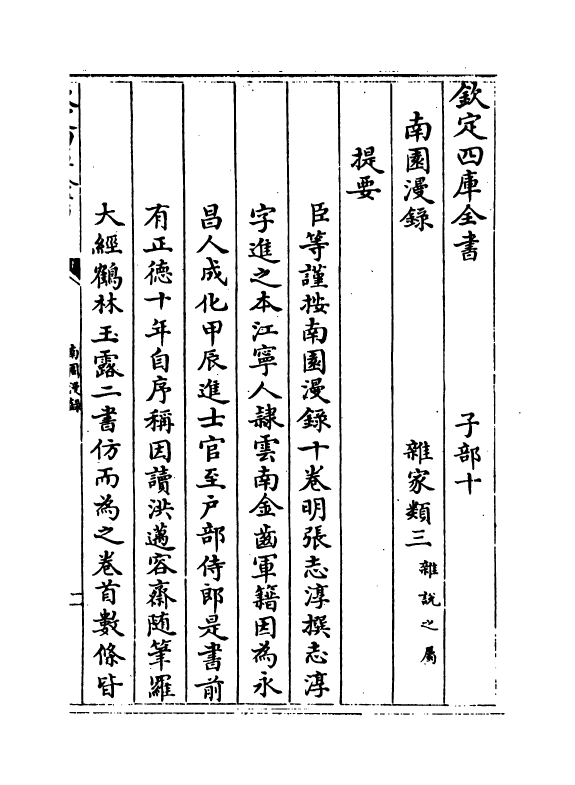 欽定四庫全書　子部十
南園漫錄　雜家類三雜說之屬
提要
臣等謹按南園漫錄十卷明張志淳撰志淳
字進之本江寧人隸雲南金齒軍籍因為永
昌人成化甲辰進士官至戶部侍郎是書前
有正德十年自序稱因讀洪邁容齋随筆羅
大經鶴林玉露二書仿而為之卷首數條皆
南園漫錄